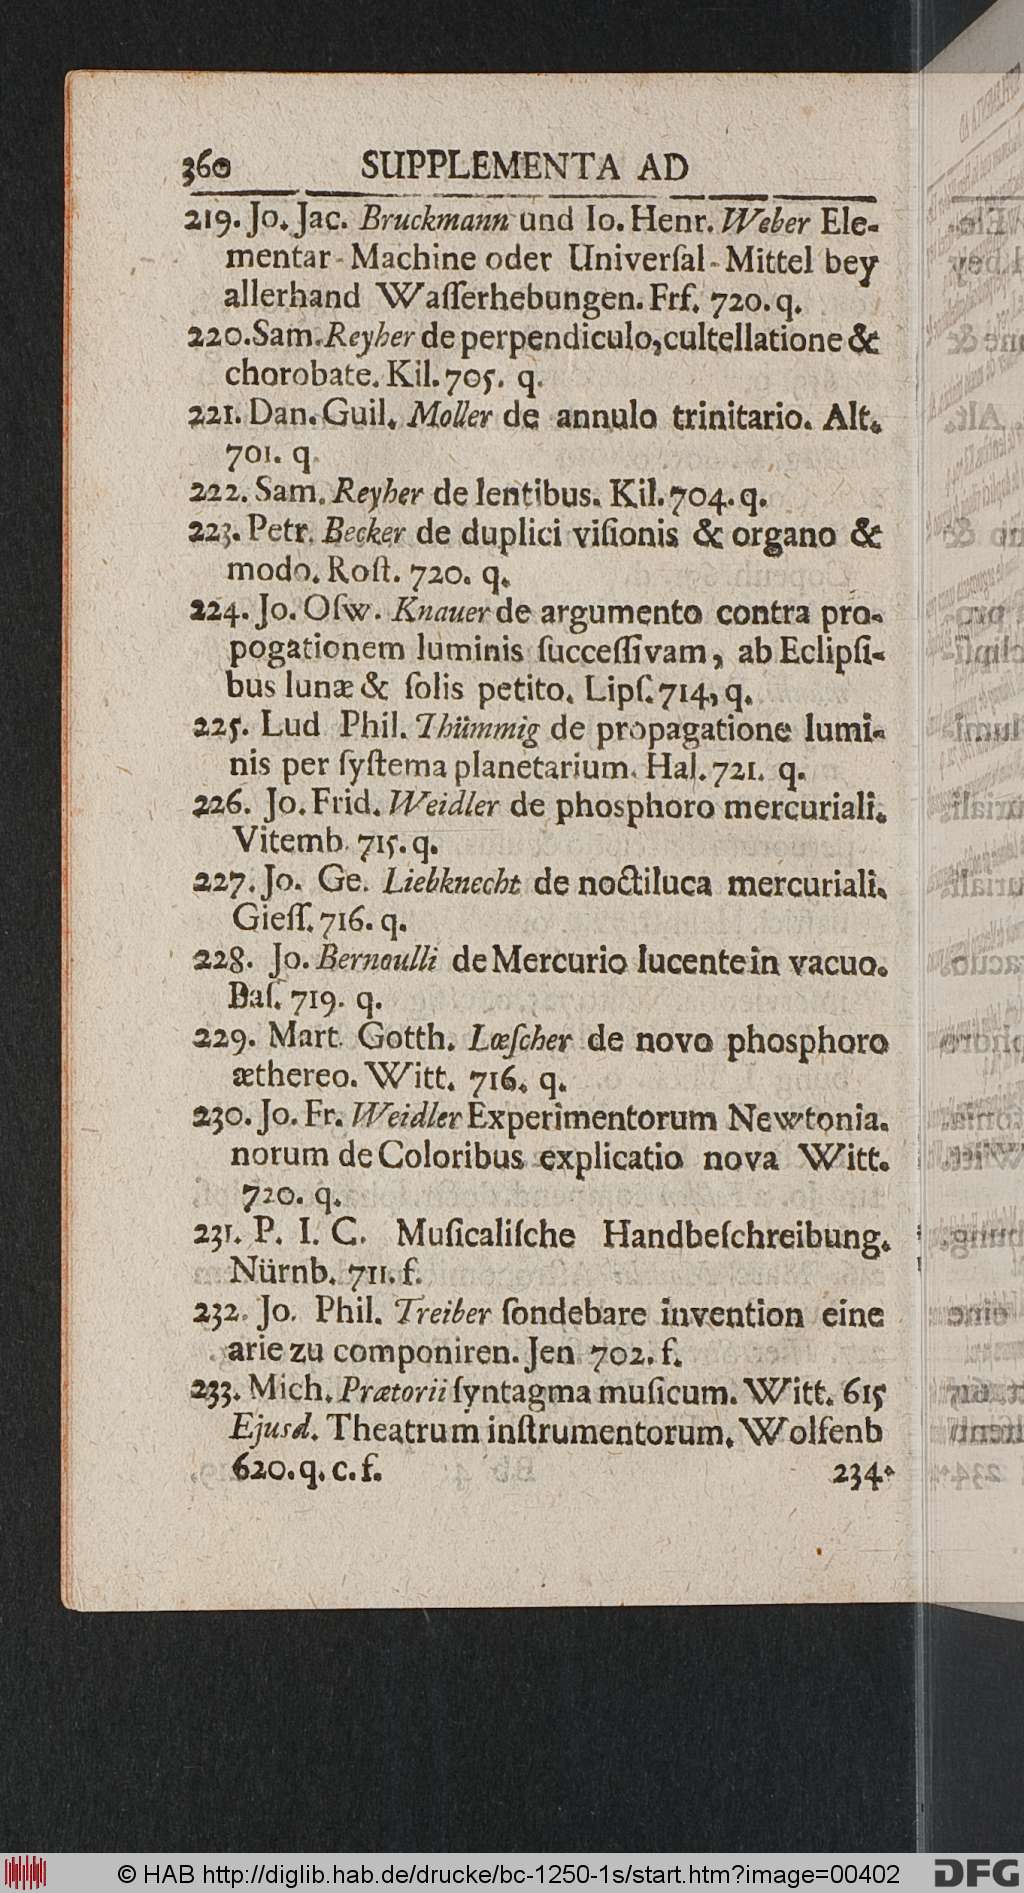 360 SUPPLEMENTA AD
219. Jo. Jac. Bruckmann und Io. Henr. Weber Ele-
mentar-Machine oder Univerſal-Mittel bey
allerhand Waſſerhebungen. Frf. 720. q.
220. Sam. Reyher de perpendiculo, cultellatione &
chorobate. Kil. 705. q.
221. Dan. Guil. Moller de annulo trinitario. Alt.
701. q.
222. Sam. Reyher de lentibus. Kil. 704. q.
223. Petr. Becker de duplici viſionis & organo &
modo. Roſt. 720. q.
224. Jo. Oſw. Knauer de argumento contra pro-
pogationem luminis ſucceſſivam, ab Eclipſi-
bus lunæ & ſolis petito. Lipſ. 714, q.
225. Lud Phil. Thümmig de propagatione lumi-
nis per ſyſtema planetarium. Hal. 721. q.
226. Jo. Frid. Weidler de phosphoro mercuriali.
Vitemb. 715. q.
227. Jo. Ge. Liebknecht de noctiluca mercuriali.
Gieſſ. 716. q.
228. Jo. Bernoulli de Mercurio lucente in vacuo.
Baſ. 719. q.
229. Mart. Gotth. Lœſcher de novo phosphoro
æthereo. Witt. 716. q.
230. Jo. Fr. Weidler Experimentorum Newtonia.
norum de Coloribus explicatio nova Witt.
720. q.
231. P. I. C. Muſicaliſche Handbeſchreibung.
Nürnb. 711. f.
232. Jo. Phil. Treiber ſondebare invention eine
arie zu componiren. Jen 702. f.
233. Mich. Prætorii ſyntagma muſicum. Witt. 615
Ejusd. Theatrum inſtrumentorum. Wolfenb
620. q. c. f.
234.
© HAB http://diglib.hab.de/drucke/bc-1250-1s/start.htm?image=00402
DFG